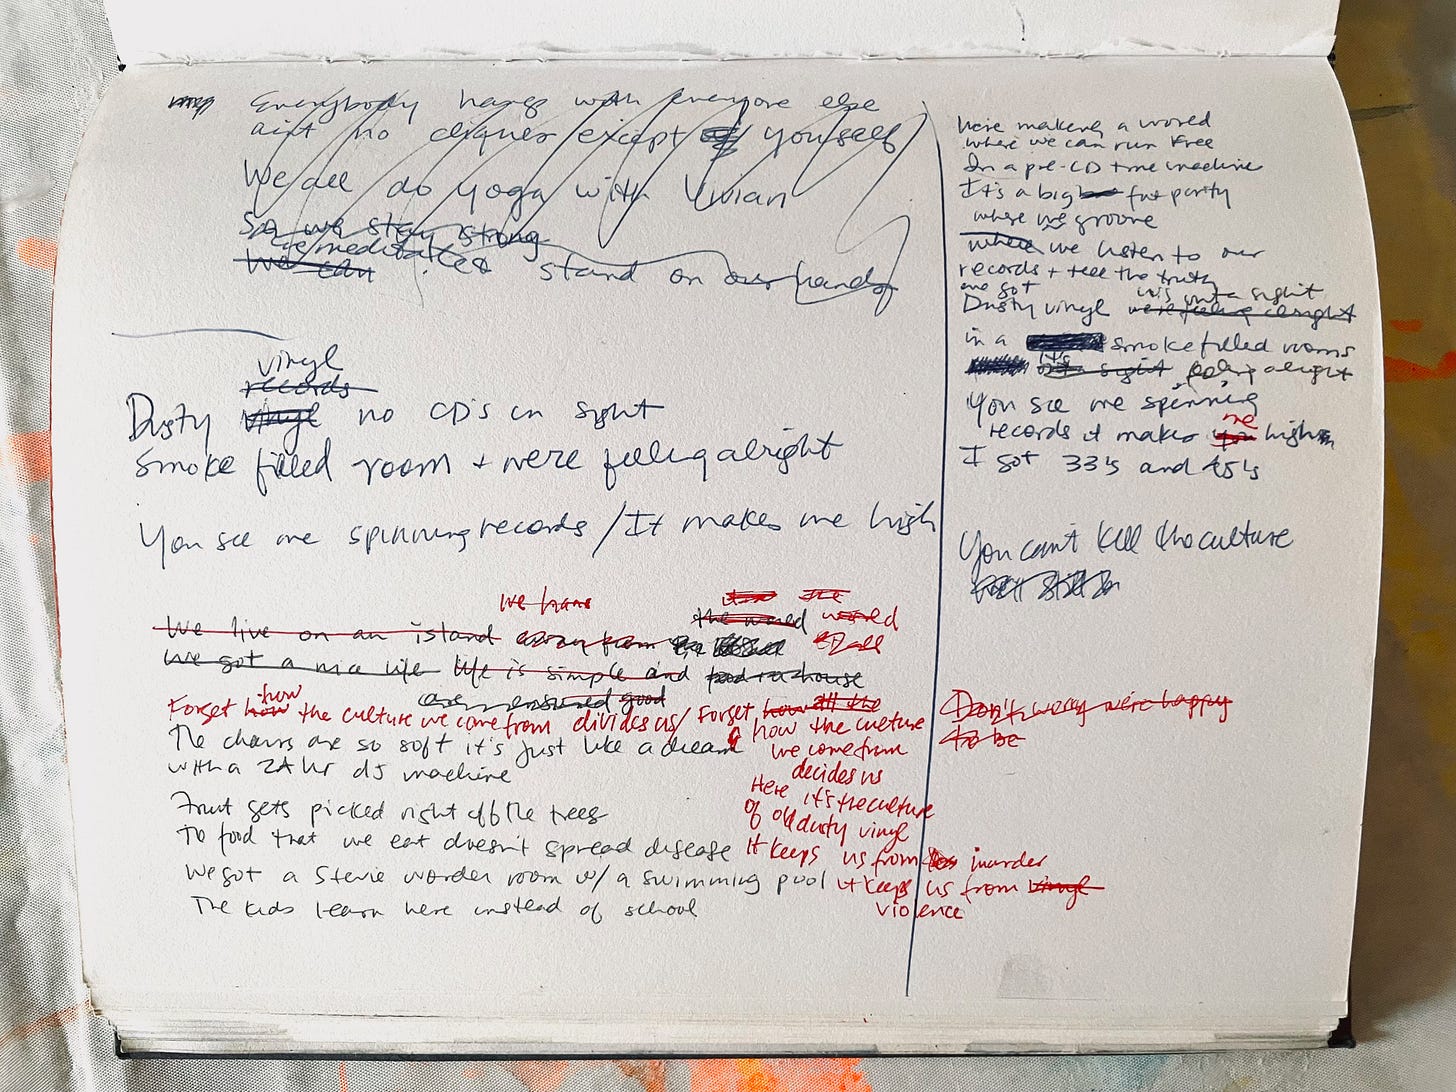 Everybody hangs with everyone else
aint no cliques except yourself
We all do yoga with Vivian
So we stay strong
we meditate stand on our hands
We can
vinyl
records
Dusty vinyl no CD's in sight
Smoke filled room + were feeling alright
You see me spinning records / It makes me high
we have
the world world
We live on an island away from
We got a nice life life is simple and house
good
Forget how how the culture we come from divides us / Forget how all the
how the culture
The chairs are so soft it's just like a dream
we come from
with a 24 hr dj machine
decides us
Here it's the culture
Fruit gets picked right off the trees
of old dusty vinyl
To food that we eat doesn't spread disease
It keeps us from murder
We got a Stevie wonder room w/ a swimming pool
it keeps us from vinyl
violence
The kids learn here instead of school
We're making a world
where we can run free
In a pre-CD time machine
It's a big fat party
where we groove
where we listen to our
records + tell the truth
we got
Dusty vinyl were feeling alright
sight
in a smoke filled rooms
it's
sight feeling alright
You see me spinning
me
records it makes you high
I got 33's and 45's
You can't kill the culture
Don't worry we're happy
to be